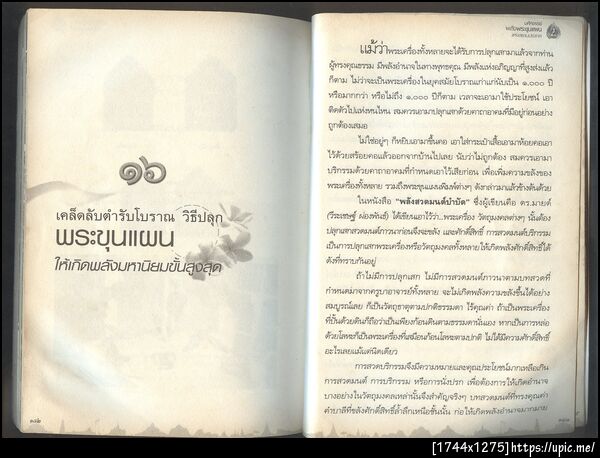 ๑๖
เคล็ดลับตำรับโบราณ วิธีปลุก
พระขุนแผน
ให้เกิดพลังมหานิยมขั้นสูงสุด
แม้ว่าพระเครื่องทั้งหลายจะได้รับการปลุกเสกมาแล้วจากท่าน
ผู้ทรงคุณธรรม มีพลังอำนาจในทางพุทธคุณ มีพลังแห่งอภิญญาที่สูงส่งแล้ว
ก็ตาม ไม่ว่าจะเป็นพระเครื่องในยุคสมัยโบราณเก่าแก่นับเป็น ๑,๐๐๐ ปี
หรือมากกว่า หรือไม่ถึง ๑,๐๐๐ ปีก็ตาม เวลาจะเอามาใช้ประโยชน์ เอา
ติดตัวไปแห่งหนไหน สมควรเอามาปลุกเสกด้วยคาถาอาคมที่มีอยู่ก่อนอย่าง
ถูกต้องเสมอ
ไม่ใช่อยู่ๆ ก็หยิบเอามาขึ้นคอ เอาใส่กระเป๋าเสื้อเอามาห้อยคอเอา
ไว้ด้วยสร้อยคอแล้วออกจากบ้านไปเลย นับว่าไม่ถูกต้อง สมควรเอามา
บริกรรมด้วยคาถาอาคมที่กำหนดเอาไว้เสียก่อน เพื่อเพิ่มความขลังของ
พระเครื่องทั้งหลาย รวมถึงพระขุนแผนพิมพ์ต่างๆ ดังกล่าวมาแล้วข้างต้นด้วย
ในหนังสือ "พลังสวดมนต์บำบัด" ซึ่งผู้เขียนคือ ดร.มายต์
(วีระเชษฐ์ ผ่องพันธ์) ได้เขียนเอาไว้ว่า..พระเครื่อง วัตถุมงคลต่างๆ นั้นต้อง
ปลุกเสกสวดมนต์ภาวนาก่อนจึงจะขลัง และศักดิ์สิทธิ์ การสวดมนต์บริกรรม
เป็นการปลุกเสกพระเครื่องหรือวัตถุมงคลทั้งหลายให้เกิดพลังศักดิ์สิทธิ์ได้
ดังที่ทราบกันอยู่
ถ้าไม่มีการปลุกเสก ไม่มีการสวดมนต์ภาวนาตามบทสวดที่
กำหนดมาจากครูบาอาจารย์ทั้งหลาย จะไม่เกิดพลังความขลังขึ้นได้อย่าง
สมบูรณ์เลย ก็เป็นวัตถุธาตุตามปกติธรรมดา ไร้คุณค่า ถ้าเป็นพระเครื่อง
ที่ปั้นด้วยดินก็ถือว่าเป็นเพียงก้อนดินตามธรรมดานั่นเอง หากเป็นการหล่อ
ด้วยโลหะก็เป็นพระเครื่องที่เสมือนก้อนโลหะตามปกติ ไม่ได้มีความศักดิ์สิทธิ์
อะไรเลยแม้แต่นิดเดียว
การสวดบริกรรมจึงมีความหมายและคุณประโยชน์มากเหลือเกิน
การสวดมนต์ การบริกรรม หรือการนั่งปรก เพื่อต้องการให้เกิดอำนาจ
บางอย่างในวัตถุมงคลเหล่านั้นจึงสำคัญจริงๆ บทสวดมนต์ที่ทรงคุณค่า
คำบาลีที่ขลังศักดิ์สิทธิ์ล้ำลึกเหนือชั้นนั้น ก่อให้เกิดพลังอำนาจมากมาย
[1744x1275]https://upic.me/